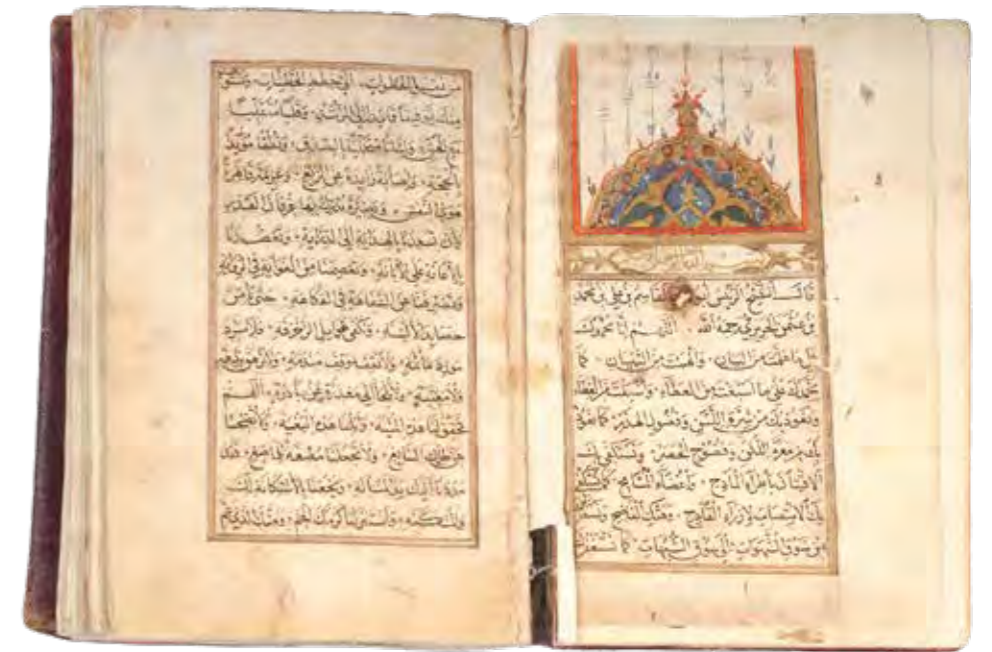 بسم الله الرحمن الرحيم
قال الشيخ الرئيس أبو القاسم بن علي بن محمد
بن عثمن الحريري رحمه الله اللهم إنا نحمدك
على ما علمت من البيان وألهمت من التبيان كما
نحمدك على ما أسبغت من العطاء وأسبلت من الغطاء
ونعوذ بك من شرة اللسن وفضول الهذر كما نعوذ
بك من معرة اللكن وفضوح الحصر ونستكفي بك
الافتتان بإطراء المادح وإغضاء المسامح كما نستكفي
بك الانتصاب لإزراء القادح وهتك الفاضح ونستغفرك
من سوق الشهوات إلى سوق الشبهات كما نستغفرك
من نقل الخطوات إلى خطط الخطيئات ونستوهب
منك توفيقا قائدا إلى الرشد وقلبا متقلبا
مع الحق ولسانا متحليا بالصدق ونطقا مؤيدا
بالحجة وإصابة ذائدة عن الزيغ وعزيمة قاهرة
هوى النفس وبصيرة ندرك بها عرفان القدر
وأن تسعدنا بالهداية إلى الدراية وتعضدنا
بالإعانة على الإبانة وتعصمنا من الغواية في الرواية
وتصرفنا عن السفاهة في الفكاهة حتى نأمن
حصائد الألسنة ونكفى غوائل الزخرفة فلا نرد
مورد مأثمة ولا نقف موقف مندمة ولا نرهق بتبعة
ولا معتبة ولا نلجأ إلى معذرة عن بادرة اللهم
فحقق لنا هذه المنية وأنلنا هذه البغية ولا تضحنا
عن ظلك السابغ ولا تجعلنا مضغة للماضغ فقد
مددنا إليك يد المسألة وبخعنا بالاستكانة لك
والمسكنة واستنزلنا كرمك الجم ومنك الذي عم